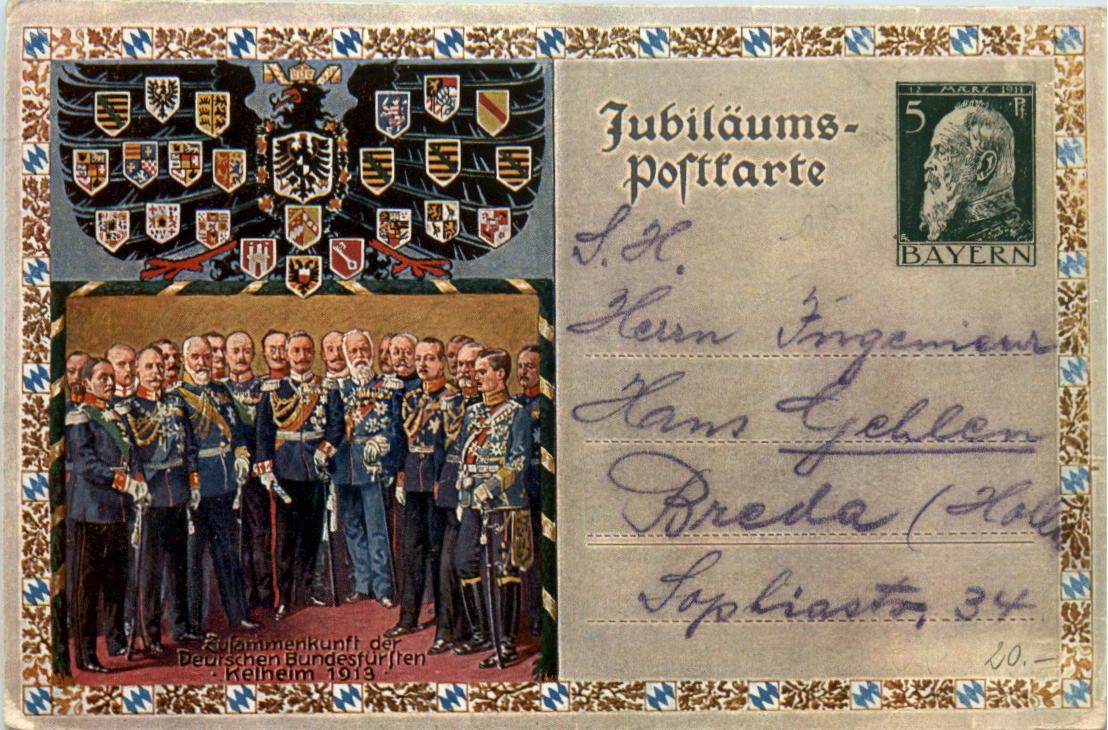 Jubiläums-
Postkarte
12 MÆRZ 1911
5 Pf
BAYERN
S. H.
Herrn Ingenieur
Hans Gehlen
Breda (Holl
Sophiastr, 34
20.-
Zusammenkunft der
Deutschen Bundesfürsten
· Kelheim 1913 ·